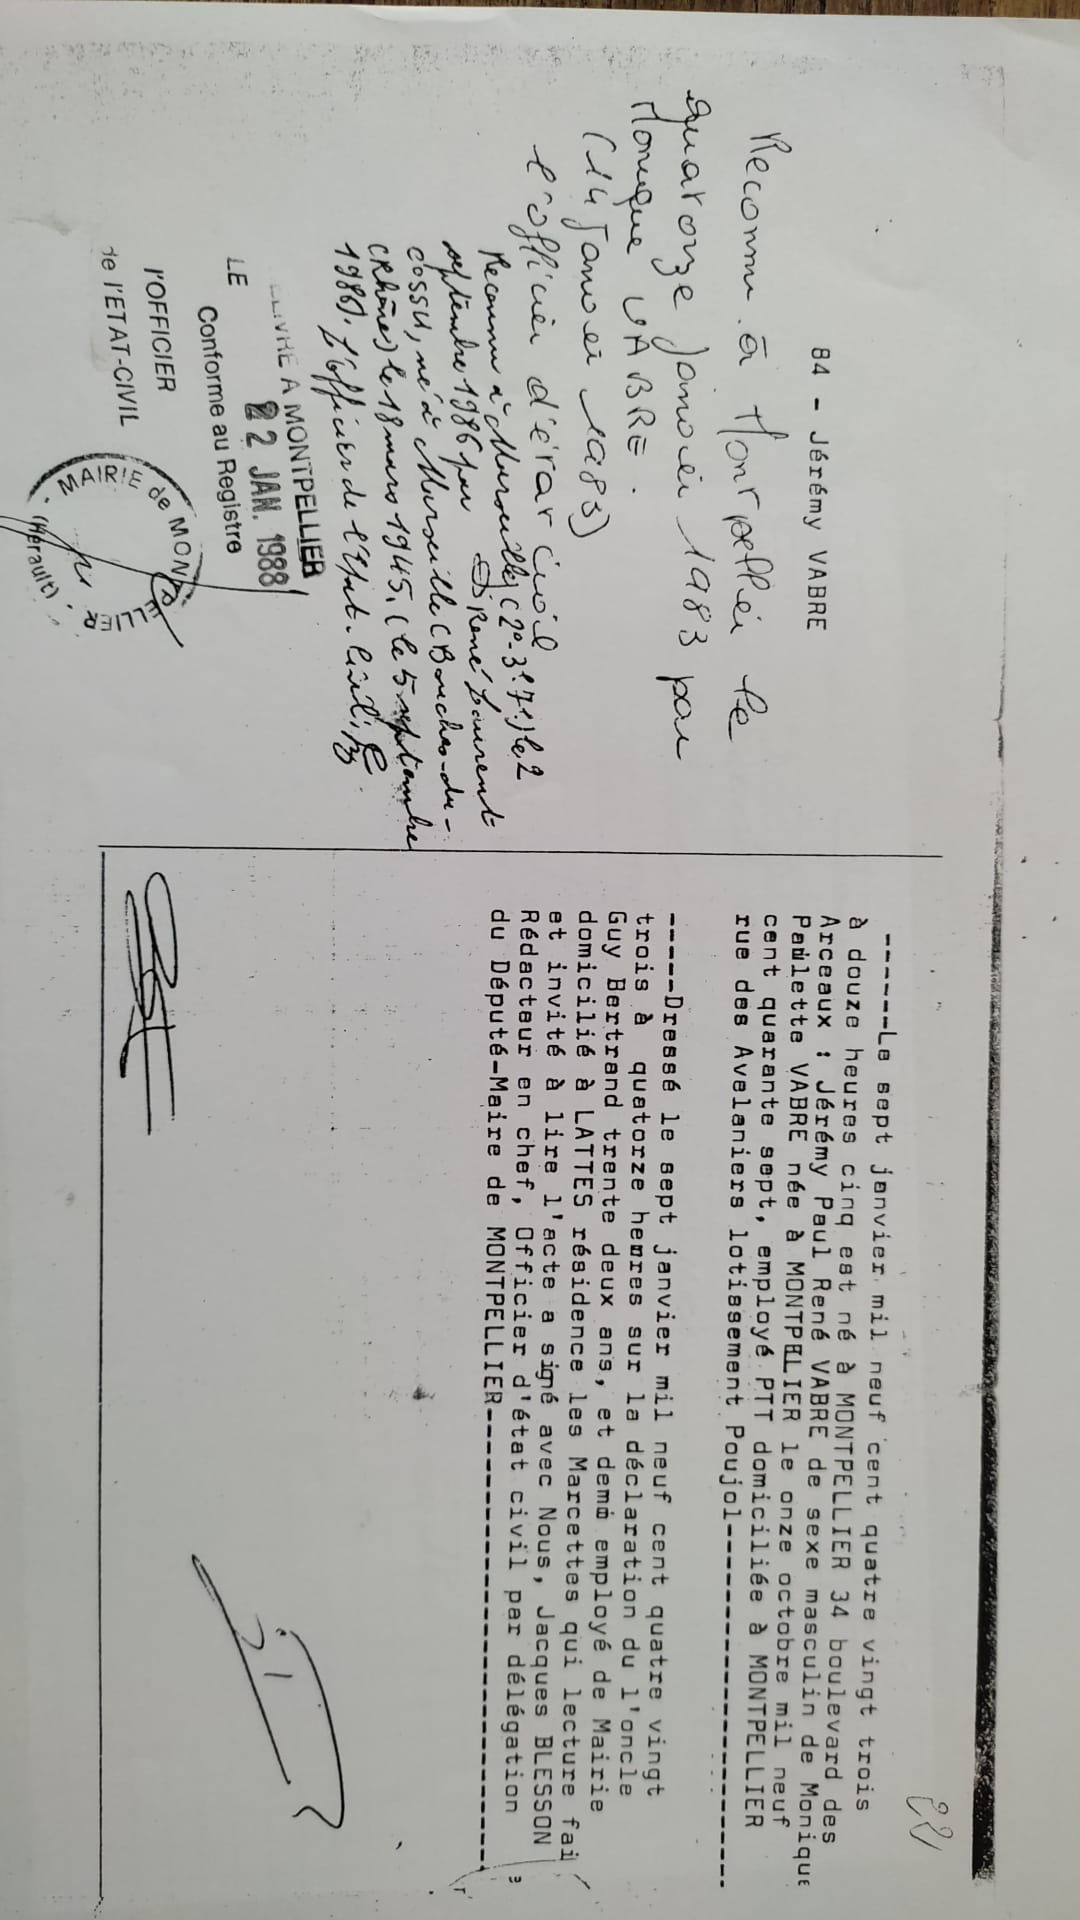 221
84 - Jérémy VABRE
Reconnu à Montpellier le
quatorze janvier 1983 par
Monique VABRE.
(14 Janvier 1983)
l'officier d'état civil
Reconnu à Marseille (2°-3°-7°) le 2
septembre 1986 par René Laurent
COSSU, né à Marseille (Bouches-du-
Rhône) le 18 mars 1945. (le 5 septembre
1986). L'Officier de l'Etat-Civil,
------Le sept janvier mil neuf cent quatre vingt trois
à douze heures cinq est né à MONTPELLIER 34 boulevard des
Arceaux : Jérémy Paul René VABRE de sexe masculin de Monique
Paulette VABRE née à MONTPELLIER le onze octobre mil neuf
cent quarante sept, employé PTT domiciliée à MONTPELLIER
rue des Avelaniers lotissement Poujol------------------------
-----Dressé le sept janvier mil neuf cent quatre vingt
trois à quatorze heures sur la déclaration du l'oncle
Guy Bertrand trente deux ans, et demi employé de Mairie
domicilié à LATTES résidence les Marcettes qui lecture fai
et invité à lire l'acte a signé avec Nous, Jacques BLESSON
Rédacteur en chef, Officier d'état civil par délégation
du Député-Maire de MONTPELLIER-------------------------------
DELIVRE A MONTPELLIER
LE 22 JAN. 1988
Conforme au Registre
l'OFFICIER
de l'ETAT-CIVIL
MAIRIE de MONTPELLIER
(Hérault)